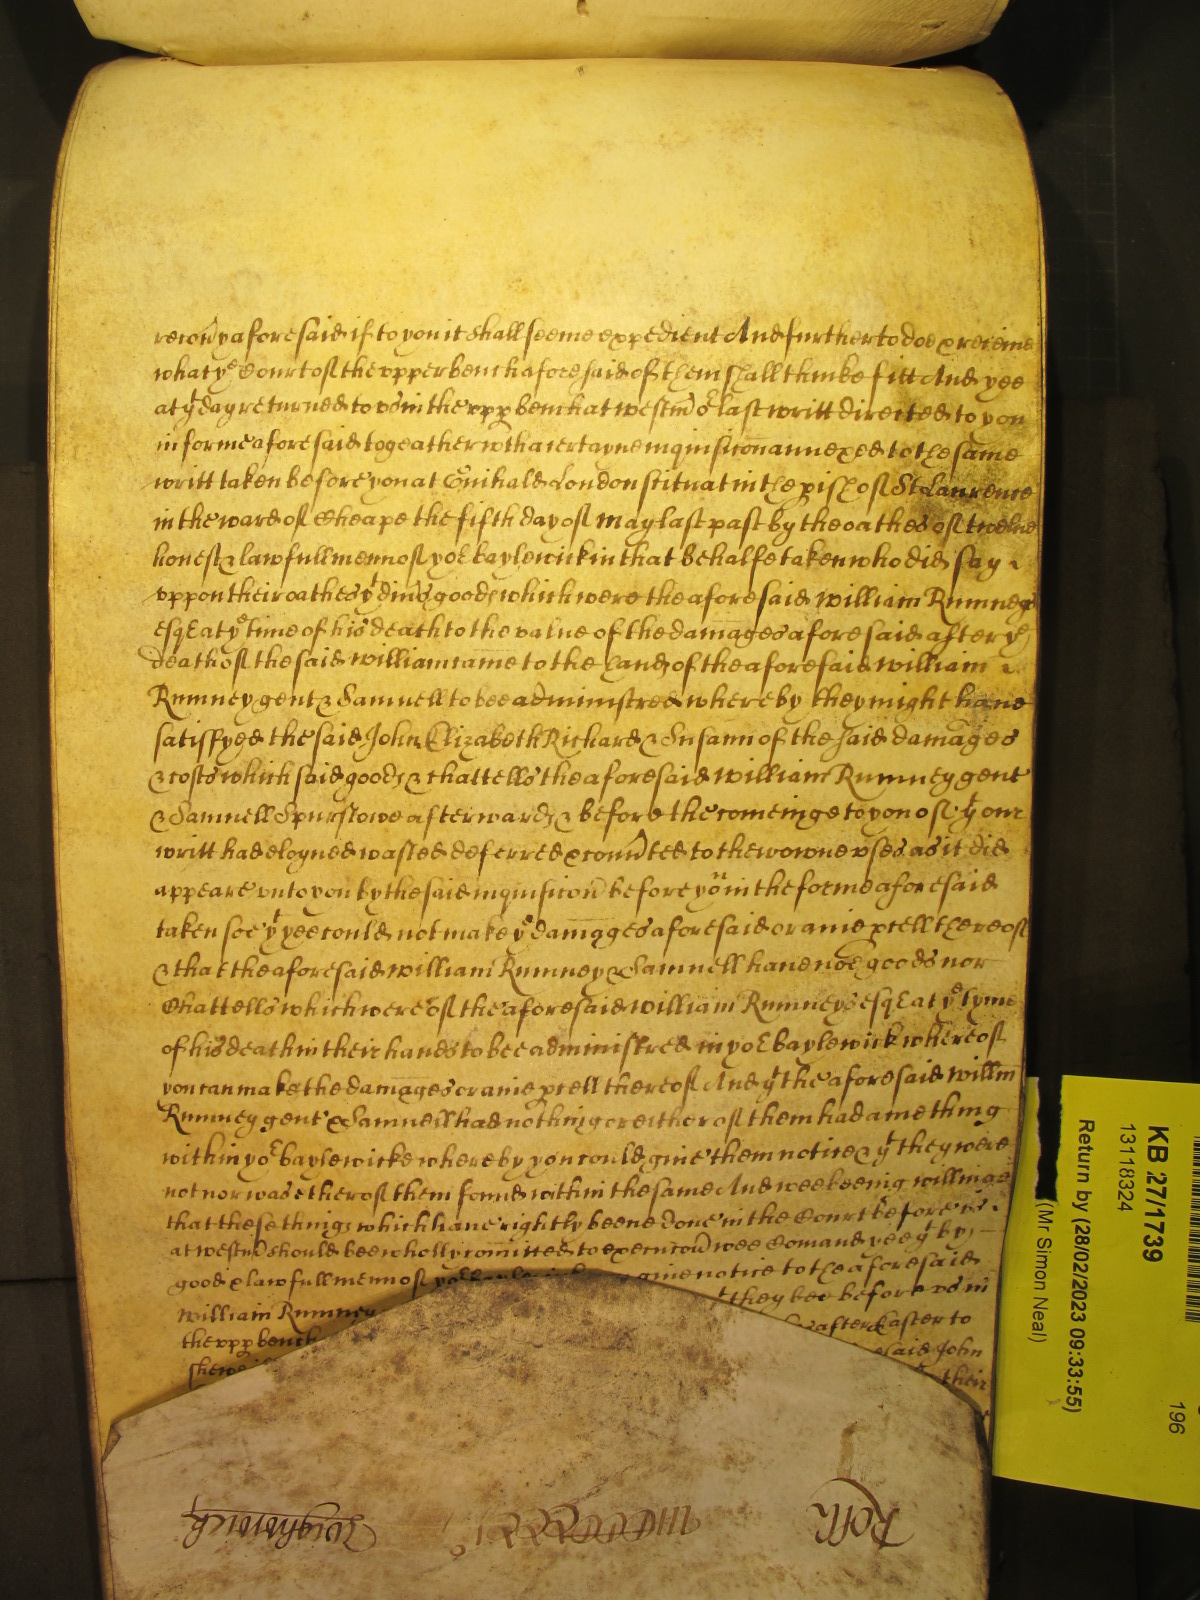 recoũy aforesaid if to you it shall seeme expedient And further to doe & receive
what yᵉ Court of the upper bench aforesaid of them shall thinke fitt And yee
at yᵗ day returned to us in the upp bench at westm̃ oʳ last writt directed to you
in forme aforesaid togeather wth a certayne inquisicon annexed to the same
writt taken before you at Guihald London scituat in the pish of St Laurence
in the ward of Cheape the fifth day of may last past by the oathes of twelve
honest & lawfull men of yoʳ baylewick in that behalfe taken who did say
uppon their oathes yᵗ divs goods which were the aforesaid william Rumneys
esqʳ at yᵉ time of his death to the value of the damages aforesaid after yᵉ
death of the said william came to the hands of the aforesaid william
Rumney gent & Samuell to bee administred whereby they might have
satisfyed the said John Elizabeth Richard & Susann of the said damages
& costs which said goods & chattells the aforesaid william Rumney gent
& Samuell Spurstowe afterwards & before the comeinge to you of yᵗ our
writt had eloyned wasted deferred & convted to their owne uses as it did
appeare unto you by the said inquisicoñ before yoᵘ in the forme aforesaid
taken soe yᵗ yee could not make yᵉ damages aforesaid or anie pcell thereof
& that the aforesaid william Rumney & Samuell have noe goods nor
Chattells which were of the aforesaid william Rumneys esqʳ at yᵉ tyme
of his death in their hands to bee administred in yoʳ baylewick whereof
you can make the damages or anie pcell thereof And yᵗ the aforesaid willm
Rumney gent & Samuell had nothing or either of them had anie thing
within yoʳ baylewicke whereby you could give them notice & yᵗ they were
not nor was ether of them found within the same And wee beeing willinge
that these things which have rightly beene done in the Court before us
at westm̃ should bee wholly comitted to execucoñ wee Comand yee yᵗ by
good & lawfull men of yoʳ give notice to the aforesaid
william Rumney they bee before us in
the upp bench after Easter to
shew said John
their
Rott
Wightwick
KB 27/1739
13118324
Return by (28/02/2023 09:33:55)
(Mr Simon Neal)
196